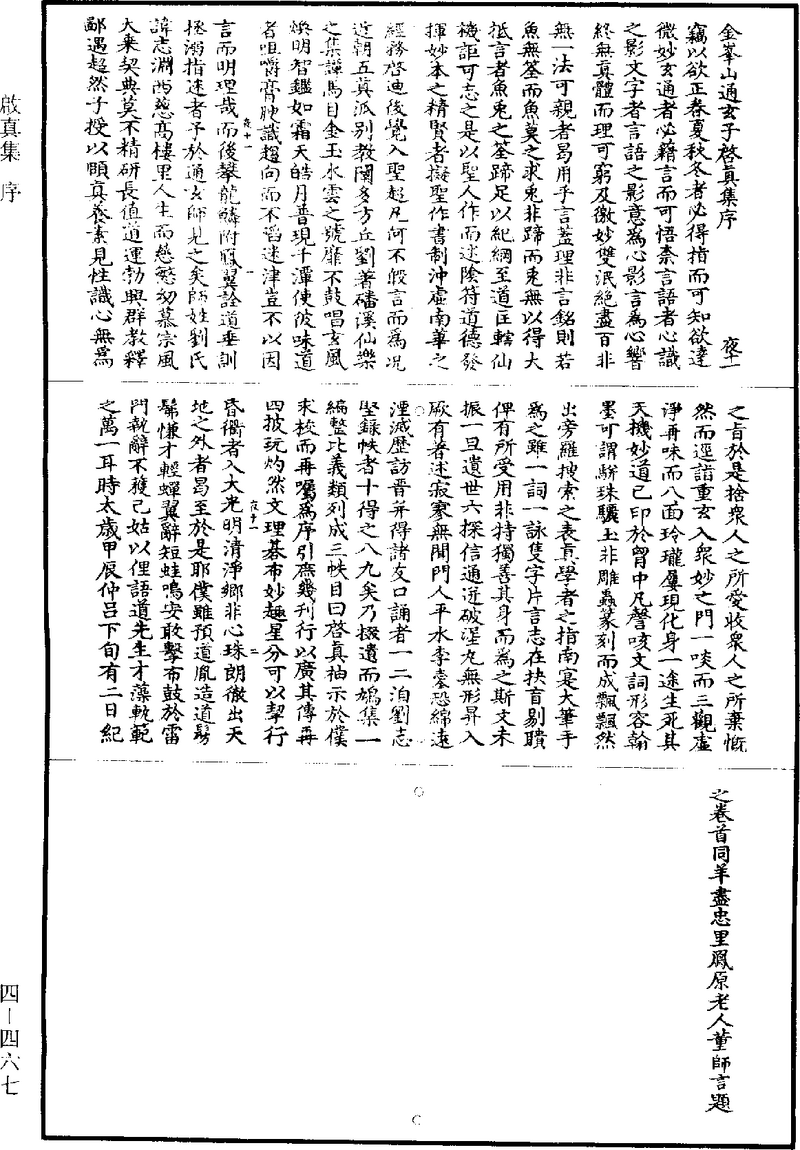 金峯山通玄子啓真集序
夜十一
竊以欲正春夏秋冬者必得指而可知欲達
微妙玄通者必籍言而可悟柰言語者心識
之影文字者言語之影意為心影言為心響
終無真體而理可窮及微妙雙泯絶盡百非
無一法可親者曷用乎言蓋理非言銘則若
魚無筌而魚莫之求兎非蹄而兎無以得大
抵言者魚兎之筌蹄足以紀綱至道匡轄仙
襪詎可忘之是以聖人作而述陰符道德發
揮妙本之精賢者擬聖作書制沖虛南華之
經務啓迪後覺入聖超凡何不假言而為况
近朝五真派別教闡多方丘劉著磻溪仙樂
之集譚馬目金玉水雲之號靡不鼓唱玄風
煥明智鑑如霜天皓月普現千潭使彼味道
者咀嚼膏腴識趨向而不滔迷津豈不以因
夜十一
一
言而明理哉而後攀龍鱗附鳳翼詮道垂訓
拯溺指迷者予於通玄師見之矣師姓劉氏
諱志淵西慈高樓里人生而慈慤幼慕宗風
大乘契典莫不精研長值道運勃興群教釋
鄙遇超然子授以頤真養素見性識心無為
之旨於是捨衆人之所愛收衆人之所棄慨
然而逕詣重玄入衆妙之門一啖而三觀虛
淨再味而八面玲瓏屢現化身一途生死其
天機妙道已印於胷中凡謦咳文詞形容翰
墨可謂駢珠驪玉非雕蟲篆刻而成飄飄然
出旁羅搜索之表真學者之指南寔大筆手
為之雖一詞一詠隻字片言志在抉盲剔聵
俾有所受用非特獨善其身而為之斯文未
振一旦遺世六探信通迸破涅丸無形昇入
厥有著述寂寥無聞門人平水李蓁恐綿遠
湮滅歴訪晉并得諸友口誦者一二洎劉志
堅録帙者十得之八九矣乃掇遺而鳩集一
編整比義類列成三帙目曰啓真袖示於僕
求校而再囑為序引庶幾刊行以廣其傳再
四披玩灼然文理碁布妙趣星分可以挈行
夜十一
二
昏衢者入大光明清淨鄉非心珠朗徹出天
地之外者曷至於是耶僕雖預道胤造道髣
髴慊才輕蟬翼辭短蛙鳴安敢擊布鼓於雷
門執辭不獲己姑以俚語道先生才藻軌範
之萬一耳時太歲甲辰仲呂下旬有二日紀
之卷首同羊盡忠里鳳原老人董師言題
啟真集 序
四－四六七